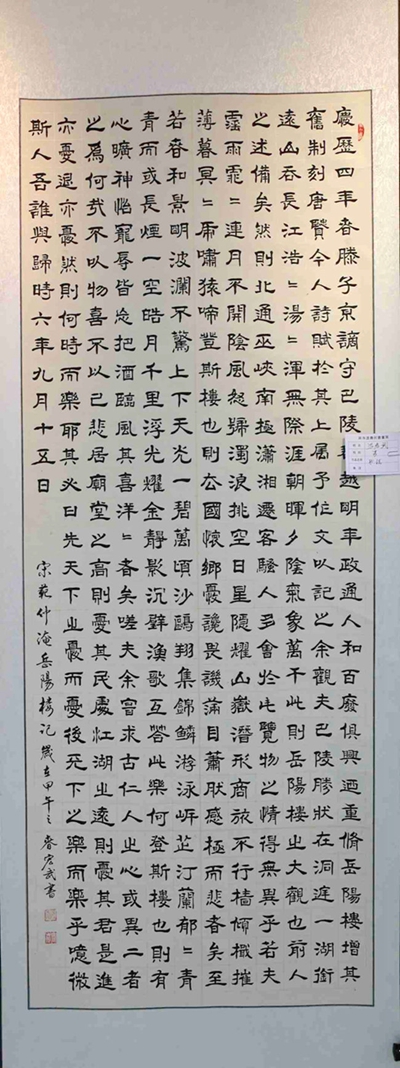 慶歷四年春滕子京謫守巴陵越明年政通人和百廢俱興迺重脩岳陽樓增其
舊制刻唐賢今人詩賦於其上屬予作文以記之余觀夫巴陵勝狀在洞庭一湖銜
遠山吞長江浩〻湯〻渾無際涯朝暉夕陰氣象萬千此則岳陽樓之大觀也前人
之述備矣然則北通巫峽南極瀟湘遷客騷人多會於此覽物之情得無異乎若夫
霪雨霏〻連月不開陰風怒號濁浪排空日星隱耀山嶽潛形商旅不行檣傾楫摧
薄暮冥〻虎嘯猿啼登斯樓也則去國懷鄉憂讒畏譏滿目蕭然感極而悲者矣至
若春和景明波瀾不驚上下天光一碧萬頃沙鷗翔集錦鱗游泳岸芷汀蘭郁〻青
青而或長煙一空皓月千里浮光耀金靜影沉璧漁歌互答此樂何登斯樓也則有
心曠神怡寵辱皆忘把酒臨風其喜洋〻者矣嗟夫余嘗求古仁人之心或異二者
之為何哉不以物喜不以己悲居廟堂之高則憂其民處江湖之遠則憂其君是進
亦憂退亦憂然則何時而樂耶其必曰先天下之憂而憂後天下之樂而樂乎噫微
斯人吾誰與歸時六年九月十五日
宋范仲淹岳陽樓記歲在甲午之春宏武書